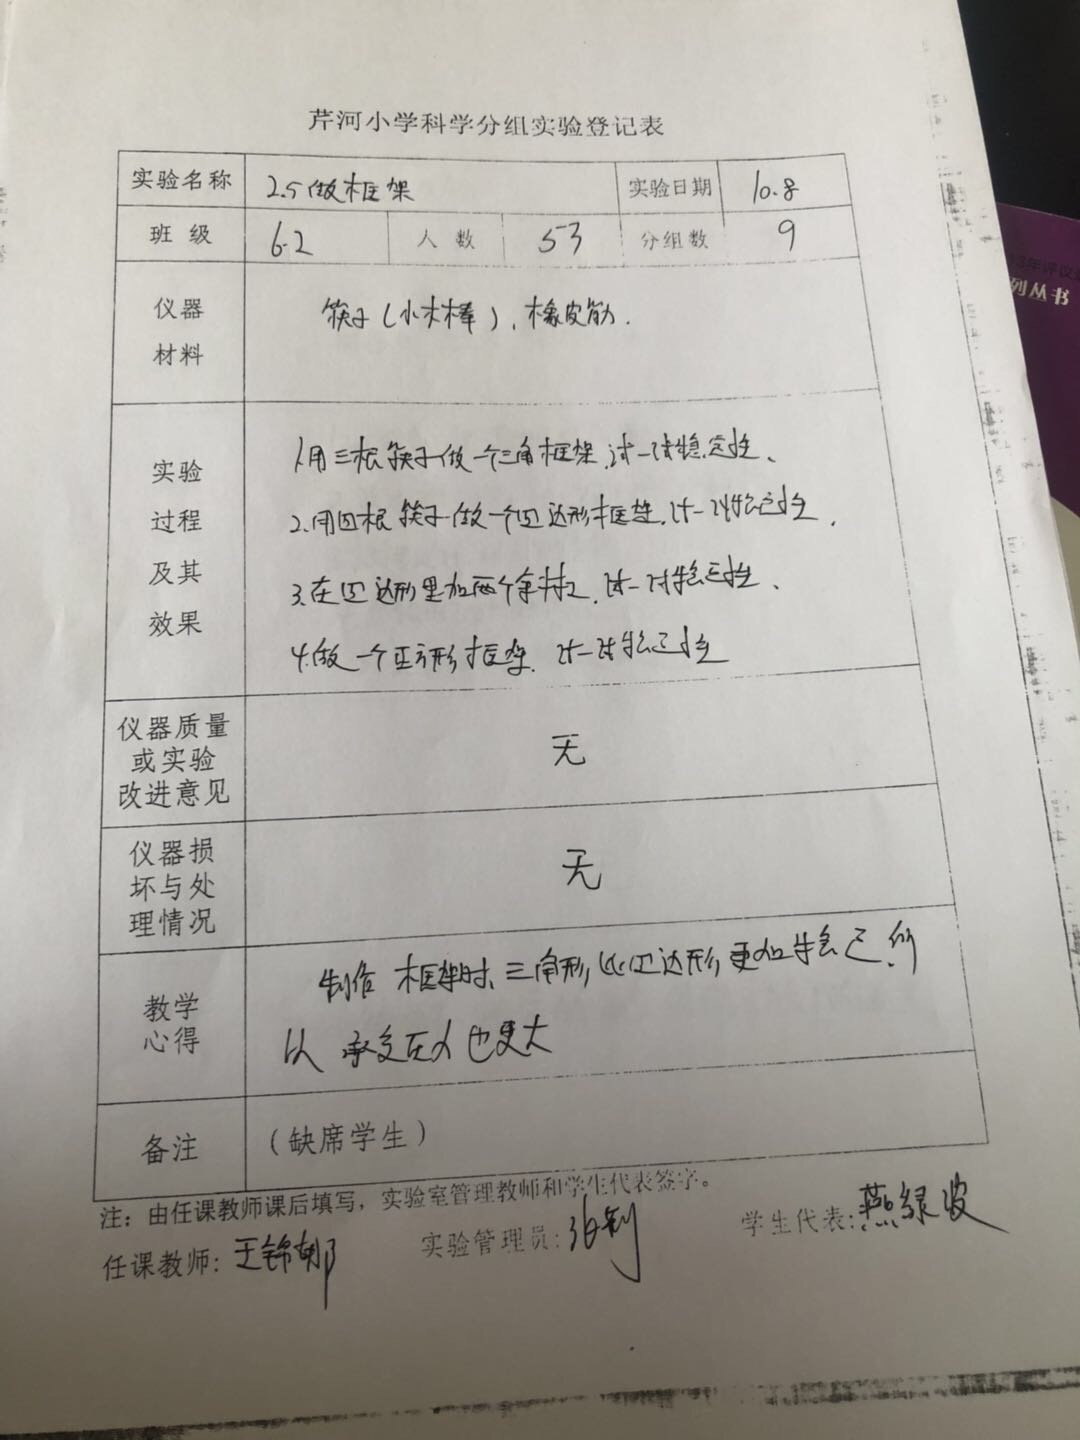 芹河小学科学分组实验登记表
实验名称 2.5做框架 实验日期 10.8
班级 6.2 人数 53 分组数 9
仪器材料 筷子(小木棒)、橡皮筋.
实验过程及其效果
1.用三根筷子做一个三角框架,试一试稳定性、
2.用四根筷子做一个四边形框架,试一试稳定性.
3.在四边形里加两个斜拉,试一试稳定性、
4.做一个正方形框架,试一试稳定性
仪器质量或实验改进意见 无
仪器损坏与处理情况 无
教学心得
制作框架时、三角形比四边形更加稳定.所
以承受压力也更大
备注 (缺席学生)
注:由任课教师课后填写,实验室管理教师和学生代表签字。
任课教师:王锦 实验管理员: 学生代表:燕绿波
列丛书